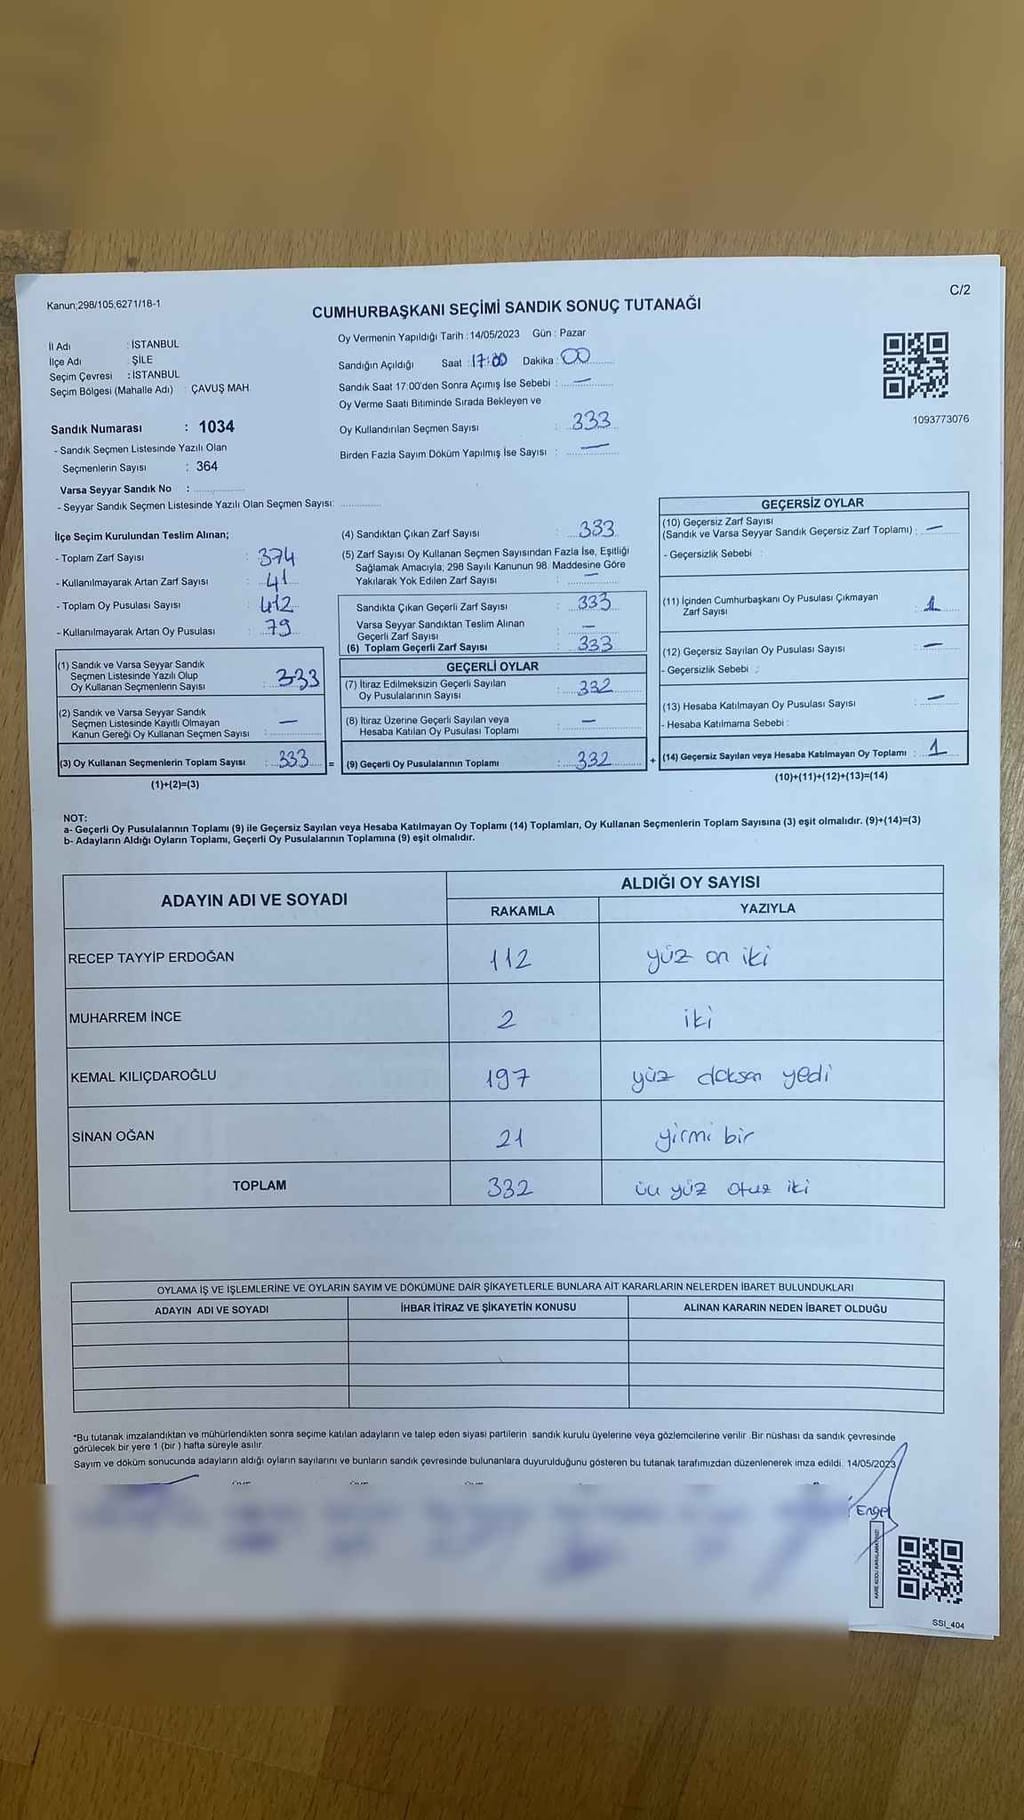 Kanun;298/105,6271/18-1
C/2
CUMHURBAŞKANI SEÇİMİ SANDIK SONUÇ TUTANAĞI
İl Adı : İSTANBUL
İlçe Adı ŞİLE
Seçim Çevresi : İSTANBUL
Seçim Bölgesi (Mahalle Adı) : ÇAVUŞ MAH
Oy Vermenin Yapıldığı Tarih : 14/05/2023 Gün : Pazar
Sandığın Açıldığı Saat : 17:00 Dakika : 00
Sandık Saat 17:00'den Sonra Açımış İse Sebebi : —
Oy Verme Saati Bitiminde Sırada Bekleyen ve
Oy Kullandırılan Seçmen Sayısı : 333
Birden Fazla Sayım Döküm Yapılmış İse Sayısı : —
1093773076
Sandık Numarası : 1034
- Sandık Seçmen Listesinde Yazılı Olan
Seçmenlerin Sayısı : 364
Varsa Seyyar Sandık No :
- Seyyar Sandık Seçmen Listesinde Yazılı Olan Seçmen Sayısı:
İlçe Seçim Kurulundan Teslim Alınan;
- Toplam Zarf Sayısı : 374
- Kullanılmayarak Artan Zarf Sayısı : 41
- Toplam Oy Pusulası Sayısı : 412
- Kullanılmayarak Artan Oy Pusulası : 79
(1) Sandık ve Varsa Seyyar Sandık
Seçmen Listesinde Yazılı Olup
Oy Kullanan Seçmenlerin Sayısı : 333
(2) Sandık ve Varsa Seyyar Sandık
Seçmen Listesinde Kayıtlı Olmayan
Kanun Gereği Oy Kullanan Seçmen Sayısı : —
(3) Oy Kullanan Seçmenlerin Toplam Sayısı : 333 =
(1)+(2)=(3)
(4) Sandıktan Çıkan Zarf Sayısı : 333
(5) Zarf Sayısı Oy Kullanan Seçmen Sayısından Fazla İse, Eşitliği
Sağlamak Amacıyla; 298 Sayılı Kanunun 98. Maddesine Göre
Yakılarak Yok Edilen Zarf Sayısı : —
Sandıkta Çıkan Geçerli Zarf Sayısı : 333
Varsa Seyyar Sandıktan Teslim Alınan
Geçerli Zarf Sayısı : —
(6) Toplam Geçerli Zarf Sayısı : 333
GEÇERLİ OYLAR
(7) İtiraz Edilmeksizin Geçerli Sayılan
Oy Pusulalarının Sayısı : 332
(8) İtiraz Üzerine Geçerli Sayılan veya
Hesaba Katılan Oy Pusulası Toplamı : —
(9) Geçerli Oy Pusulalarının Toplamı : 332 +
GEÇERSİZ OYLAR
(10) Geçersiz Zarf Sayısı
(Sandık ve Varsa Seyyar Sandık Geçersiz Zarf Toplamı) : —
- Geçersizlik Sebebi :
(11) İçinden Cumhurbaşkanı Oy Pusulası Çıkmayan
Zarf Sayısı : 1
(12) Geçersiz Sayılan Oy Pusulası Sayısı : —
- Geçersizlik Sebebi :
(13) Hesaba Katılmayan Oy Pusulası Sayısı : —
- Hesaba Katılmama Sebebi :
(14) Geçersiz Sayılan veya Hesaba Katılmayan Oy Toplamı : 1
(10)+(11)+(12)+(13)=(14)
NOT:
a- Geçerli Oy Pusulalarının Toplamı (9) ile Geçersiz Sayılan veya Hesaba Katılmayan Oy Toplamı (14) Toplamları, Oy Kullanan Seçmenlerin Toplam Sayısına (3) eşit olmalıdır. (9)+(14)=(3)
b- Adayların Aldığı Oyların Toplamı, Geçerli Oy Pusulalarının Toplamına (9) eşit olmalıdır.
ADAYIN ADI VE SOYADI ALDIĞI OY SAYISI
RAKAMLA YAZIYLA
RECEP TAYYİP ERDOĞAN 112 yüz on iki
MUHARREM İNCE 2 iki
KEMAL KILIÇDAROĞLU 197 yüz doksan yedi
SİNAN OĞAN 21 yirmi bir
TOPLAM 332 üç yüz otuz iki
OYLAMA İŞ VE İŞLEMLERİNE VE OYLARIN SAYIM VE DÖKÜMÜNE DAİR ŞİKAYETLERLE BUNLARA AİT KARARLARIN NELERDEN İBARET BULUNDUKLARI
ADAYIN ADI VE SOYADI İHBAR İTİRAZ VE ŞİKAYETİN KONUSU ALINAN KARARIN NEDEN İBARET OLDUĞU
*Bu tutanak imzalandıktan ve mühürlendikten sonra seçime katılan adayların ve talep eden siyasi partilerin sandık kurulu üyelerine veya gözlemcilerine verilir. Bir nüshası da sandık çevresinde
görülecek bir yere 1 (bir ) hafta süreyle asılır.
Sayım ve döküm sonucunda adayların aldığı oyların sayılarını ve bunların sandık çevresinde bulunanlara duyurulduğunu gösteren bu tutanak tarafımızdan düzenlenerek imza edildi. 14/05/2023
SSİ_404